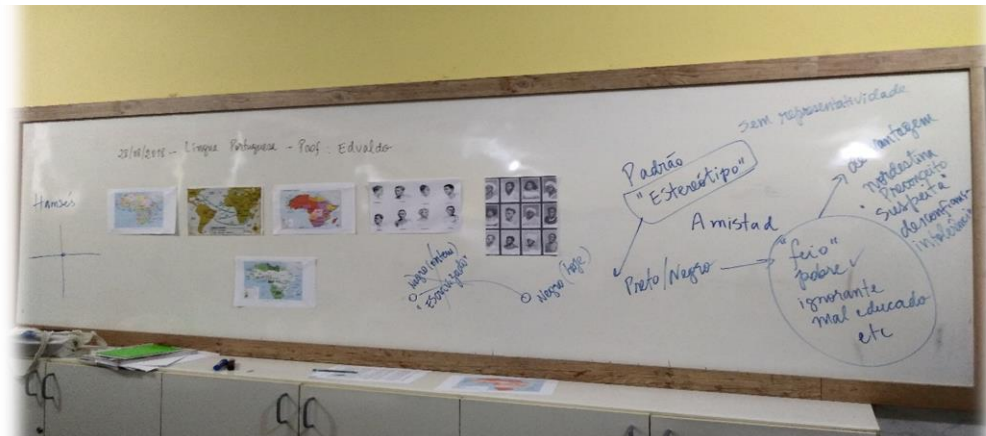 28/08/2018 - Língua Portuguesa - Prof: Edvaldo
Hamsés
Negro (ontem)
"Escravizado"
Negro (hoje)
Padrão
"Estereótipo"
Amistad
Preto/Negro
"feio"
pobre
ignorante
mal educado
etc
Sem representatividade
nordestina
Preconceito
"suspeita"
desconfiança
intolerância